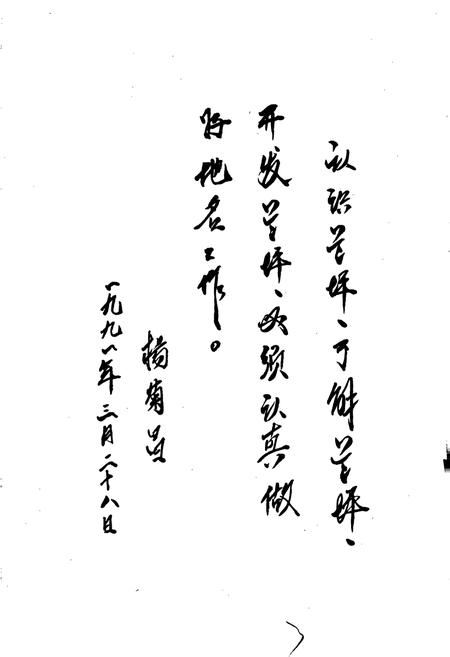 认识兰坪、了解兰坪、
开发兰坪、必须认真做
好地名工作。
杨菊
一九九一年三月二十八日